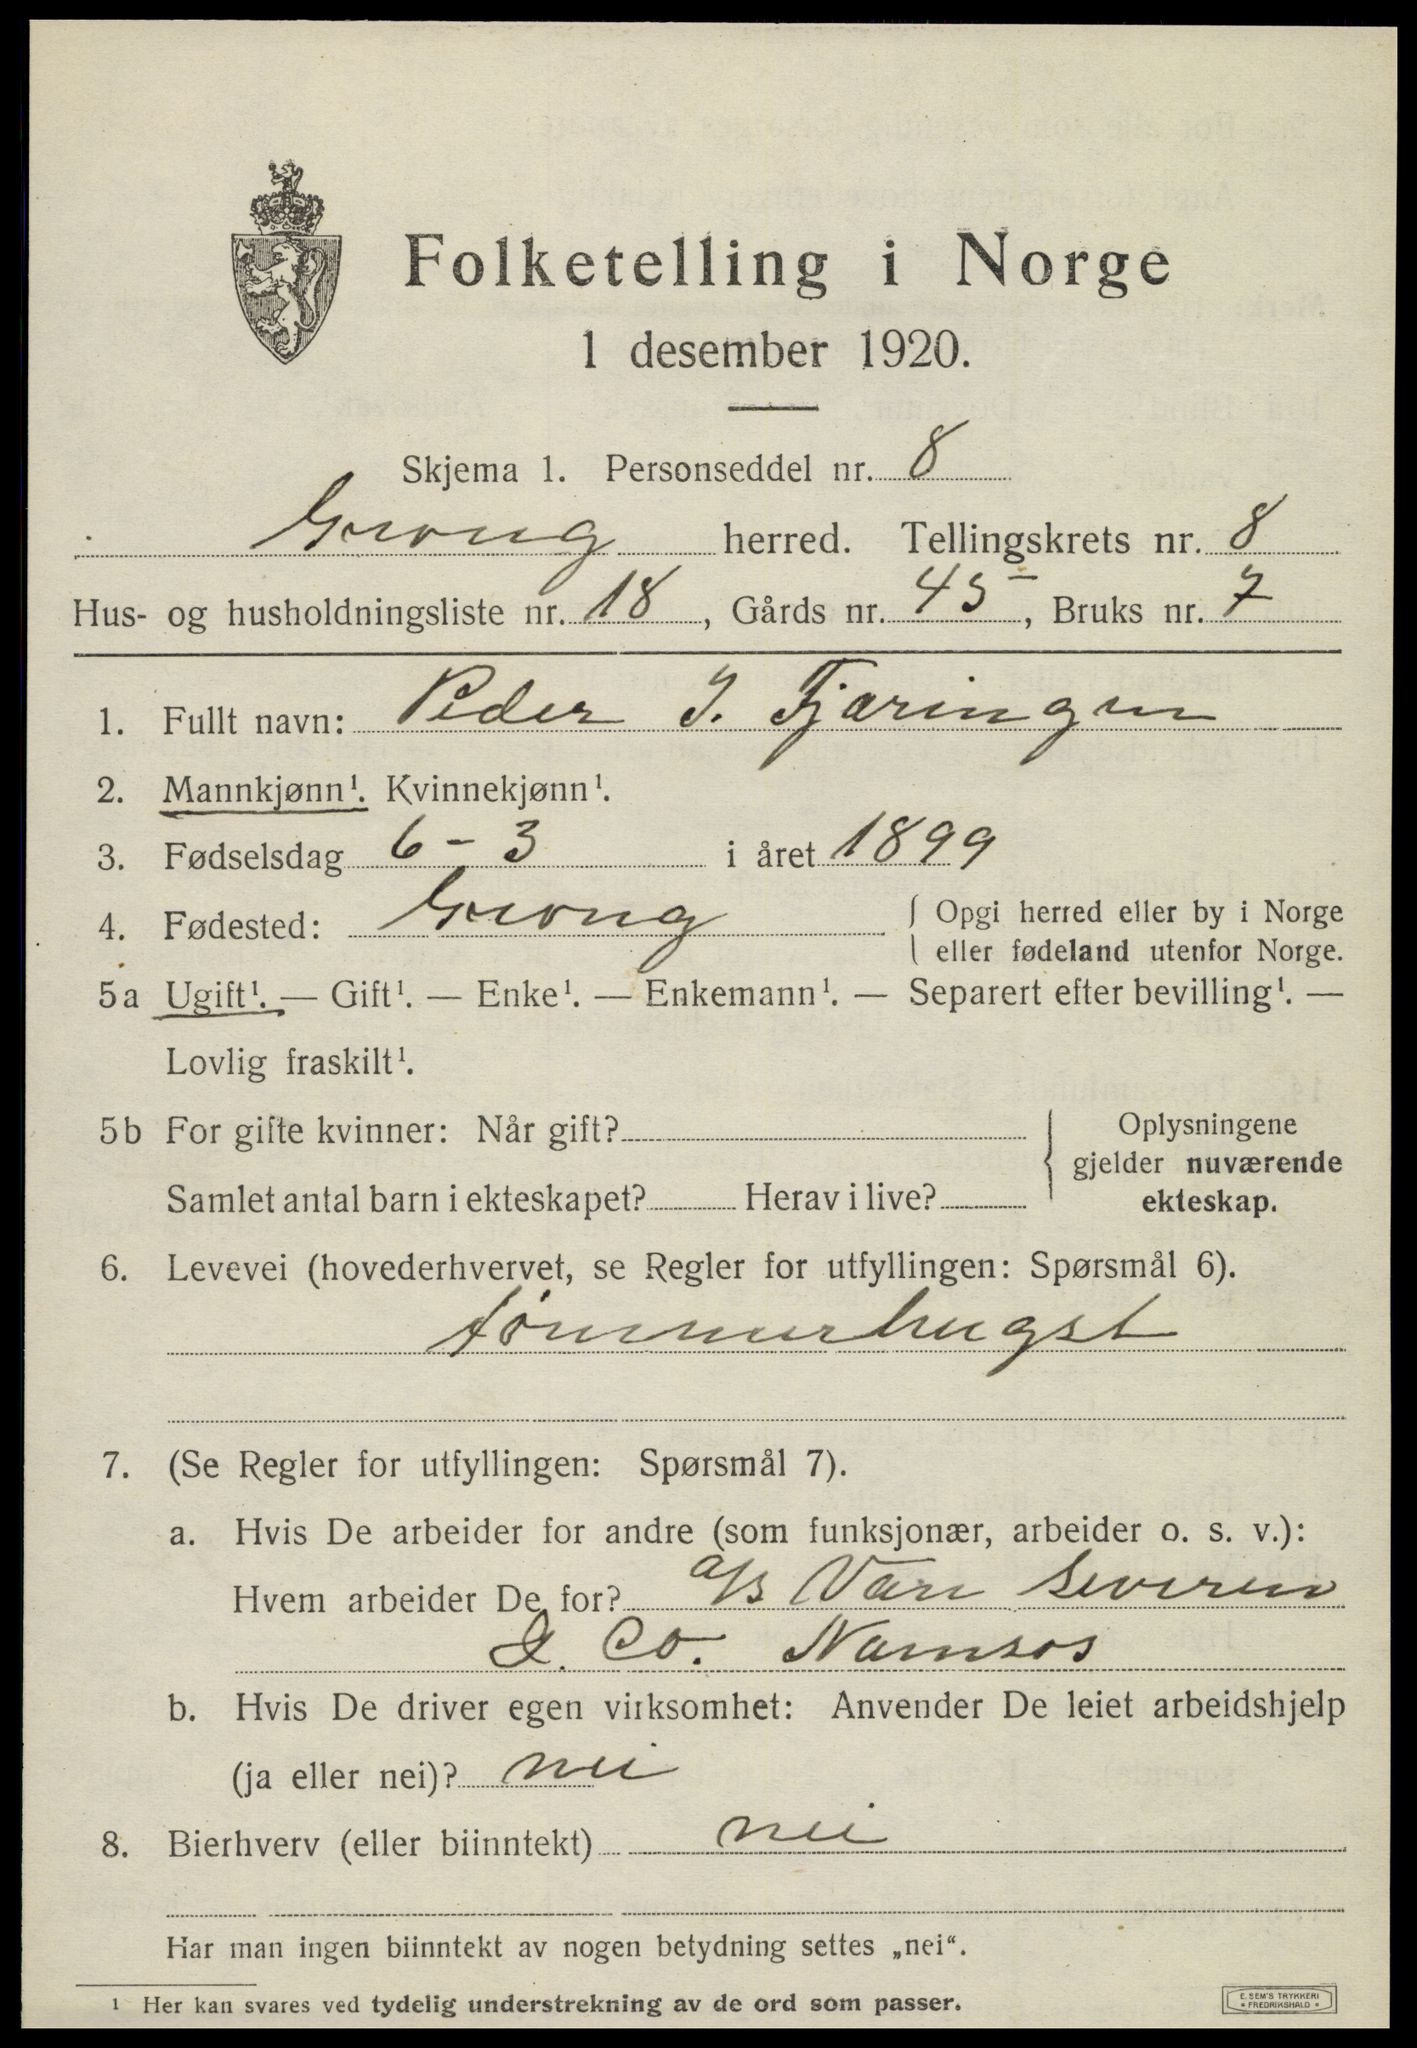 Folketelling i Norge
1 desember 1920.
Skjema 1. Personseddel nr. 8
Grong herred. Tellingskrets nr. 8
Hus- og husholdningsliste nr. 18, Gårds nr. 45, Bruks nr. 7
1. Fullt navn: Peder J. Fjæringen
2. Mannkjønn¹. Kvinnekjønn¹.
3. Fødselsdag 6-3 i året 1899
4. Fødested: Grong { Opgi herred eller by i Norge
eller fødeland utenfor Norge.
5a Ugift¹. — Gift¹. — Enke¹. — Enkemann¹. — Separert efter bevilling¹. —
Lovlig fraskilt¹.
5b For gifte kvinner: Når gift? { Oplysningene
gjelder nuværende
Samlet antal barn i ekteskapet? Herav i live? ekteskap.
6. Levevei (hovederhvervet, se Regler for utfyllingen: Spørsmål 6).
tømmerhugst
7. (Se Regler for utfyllingen: Spørsmål 7).
a. Hvis De arbeider for andre (som funksjonær, arbeider o. s. v.):
Hvem arbeider De for? a/s Van Severen
& Co. Namsos
b. Hvis De driver egen virksomhet: Anvender De leiet arbeidshjelp
(ja eller nei)? nei
8. Bierhverv (eller biinntekt) nei
Har man ingen biinntekt av nogen betydning settes „nei“.
¹ Her kan svares ved tydelig understrekning av de ord som passer.
E. SEM'S TRYKKERI
* FREDRIKSHALD *